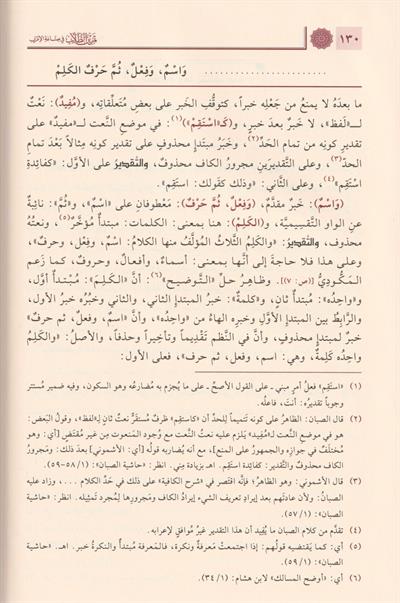 ١٣٠
تمرين الطلاب في صناعة الإعراب
........................ وَاسْمٌ، وَفِعْلٌ، ثُمَّ حَرْفٌ الكَلِمْ
ما بعدَهُ لا يمنعُ من جَعْلِه خبراً، كتوقُّفِ الخبرِ على بعضِ مُتعلّقاتِه، و(مُفِيدٌ): نَعْتٌ
لـ«لَفظ»، لا خَبَرٌ بعدَ خبرٍ، و(كَـ«اسْتَقِمْ»)(١): في موضعِ النَّعتِ لـ«مفيد» على
تقديرِ كونِه من تمامِ الحَدِّ(٢)، وخَبَرُ مبتدإٍ محذوفٍ على تقديرِ كونِه مثالاً بَعْدَ تمامِ
الحدِّ(٣)، وعلى التقديرَينِ مجرورُ الكاف محذوف، والتقديرُ على الأوَّل: «كفائِدةِ
اسْتَقِمْ»(٤)، وعلى الثَّاني: «وذلك كقَولك: استَقِم».
(وَاسْمٌ): خَبَرٌ مقدَّمٌ، (وَفِعْلٌ، ثُمَّ حَرْفٌ): مَعْطوفانِ على «اسْمٌ»، و«ثُمَّ»: نائِبَةٌ
عنِ الواوِ التَّقسِيميَّة، و(الكَلِمُ): هنا بمعنى: الكلمات: مبتدأٌ مُؤخَّرٌ(٥)، ونعتُهُ
محذوف، والتَّقديرُ: «والكَلِمُ الثَّلاثُ المُؤلَّفُ منها الكلامُ: اسْمٌ، وفِعْل، وحرفٌ»،
وعلى هذا فلا حاجةَ إلى أنَّها بمعنى: أسماءٌ، وأفعالٌ، وحروفٌ، كما زَعم
المَكُّوديُّ [ص: ٧]. وظاهِرُ حلِّ «التَّوضيح»(٦): أنَّ «الكَلِمَ»: مُبْتدأٌ أوَّل،
و«واحِدُه»: مُبتدأٌ ثانٍ، و«كلمةٌ»: خبرُ المبتدإ الثَّاني، والثاني وخبَرُه خبرُ الأولِ،
والرَّابطُ بين المبتدإ الأوَّلِ وخبرِه الهاءُ من «واحِدُه»، وأنَّ «اسمٌ، وفعلٌ، ثم حرف»
خبرٌ لمبتدإٍ محذوفٍ، وأنَّ في النَّظم تَقْديماً وتأخيراً وحذفاً، والأصلُ: «والكَلِمُ
واحِدُه كَلِمةٌ، وهي: اسم، وفعل، ثم حرف»، فعلى الأول:
(١) «استَقِم» فعلُ أمرٍ مبني - على القول الأصحِّ - على ما يُجزم به مُضارعُه وهو السكون، وفيه ضمير مُستتر
وجوباً تقديرُه: أنتَ، فاعلُه.
(٢) قال الصبان: الظاهرُ على كونِه تَتميماً لِلحدِّ أن «كاستَقِم» ظرفٌ مُستقَرٌّ نعتٌ ثانٍ لـ«لفظ»، وقولُ البَعضِ:
هو في موضعِ النَّعتِ لـ«مُفيد» يَلزم عليه نعتُ النَّعت مع وُجودِ المَنعوت مِن غيرِ مُقتَضٍ [أي: وهو
مُختلَفٌ في جوازه، والجمهورُ على المنعِ]، مع أنه يُضاربه قولُه [أي: الأشموني] بعدَ ذلك: ومَجرورُ
الكاف محذوفٌ والتَّقدير: كفائدةِ استَقِم. اهـ بزيادة مِني. انظر: «حاشية الصبان» (١/ ٥٨-٥٩).
(٣) قال الأشموني: وهو الظاهرُ؛ فإنَّه اقتَصر في «شرح الكافية» على ذلك في حَدِّ الكلام .... وزاد عليه
الصبانُ: ولأن عادتَهم بعد إيرادِ تعريفِ الشيءِ إيرادُ الكافِ ومَجرورِها لِمُجردِ تمثيلِه. انظر: «حاشية
الصبان»: (١/ ٥٧).
(٤) تقدَّم مِن كلام الصبان ما يُفيد أن هذا التقدير غيرُ مُوافقٍ لإعرابِه.
(٥) أي: كما يَقتضيه قولُهم: إذا اجتمعتْ مَعرفةٌ ونكرة، فالمَعرفة مُبتدأٌ والنكرةُ خبر. اهـ. «حاشية
الصبان»: (١/ ٥٩).
(٦) أي: «أوضح المسالك» لابن هشام: (١/ ٣٤).